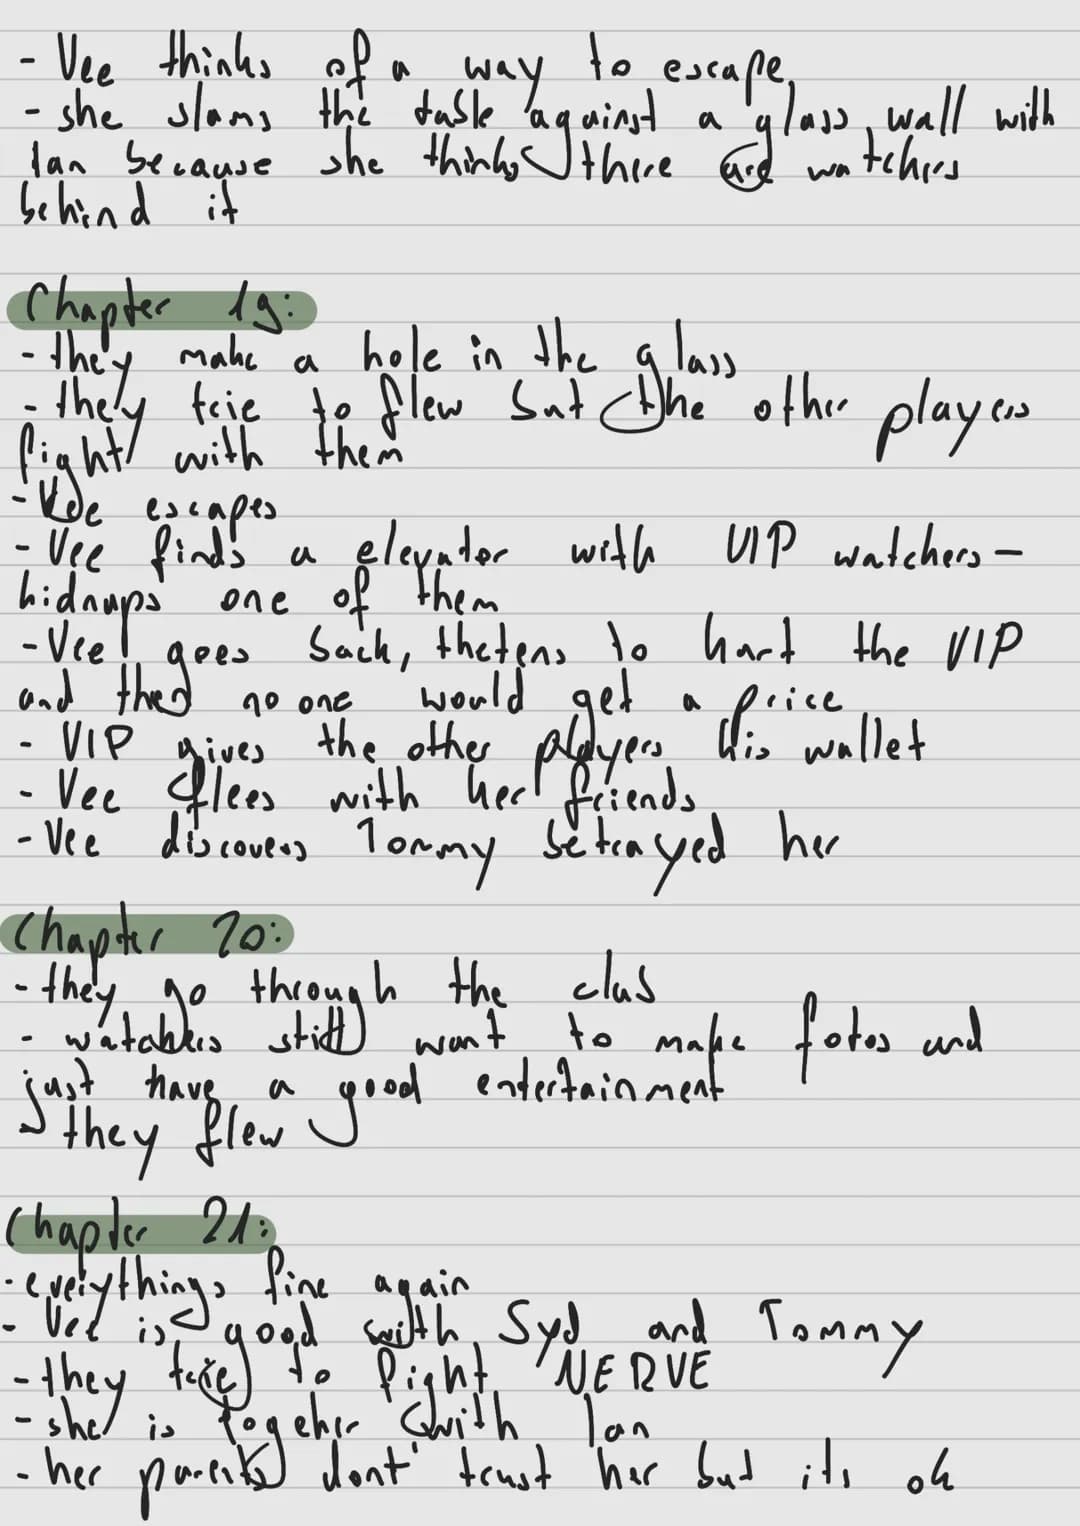 - Vee thinks of a way to escape
- she slams the table against a glass wall with
Ian because she thinks there are watchers
behind it
Chapter 19:
- they make a hole in the glass
- they trie to flew but the other players
fight with them
- Vee escapes
- Vee finds a elevator with VIP watchers -
kidnaps one of them
- Vee goes back, thetens to hurt the VIP
and then no one would get a price
- VIP gives the other players his wallet
- Vee flees with her friends
- Vee discovers Tommy betrayed her
Chapter 20:
- they go through the club
- watchers still want to make fotos and
just have a good entertainment
they flew
Chapter 21:
- everythings fine again
- Vee is good with Syd and Tommy
- they trie to fight NERVE
- she is togehr with Ian
- her parents dont' trust her but its ok